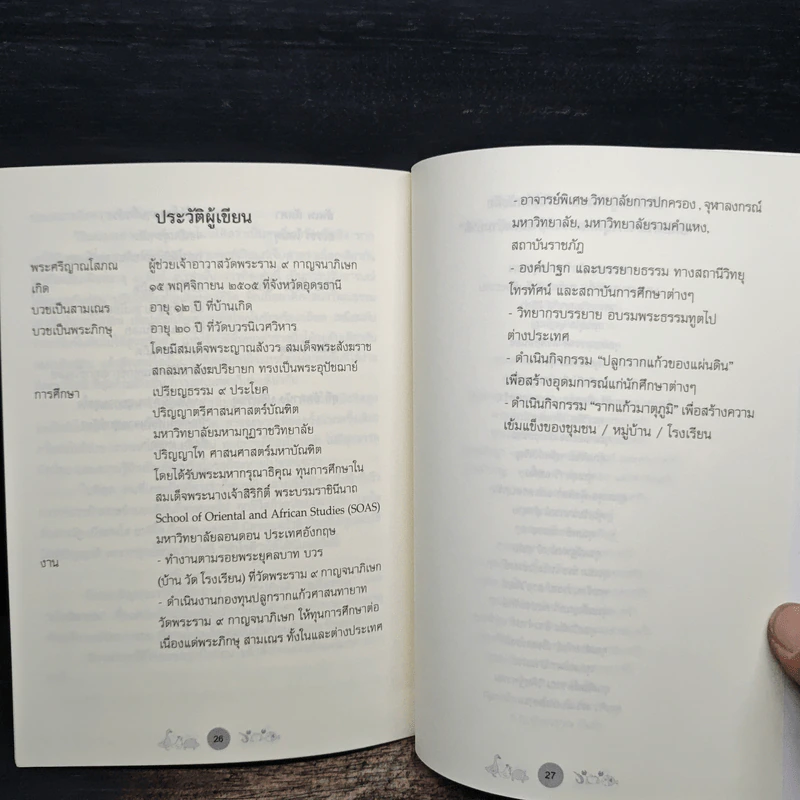 ประวัติผู้เขียน
พระศรีญาณโสภณ ผู้ช่วยเจ้าอาวาสวัดพระราม ๙ กาญจนาภิเษก
เกิด ๑๕ พฤศจิกายน ๒๕๐๕ ที่จังหวัดอุดรธานี
บวชเป็นสามเณร อายุ ๑๒ ปี ที่บ้านเกิด
บวชเป็นพระภิกษุ อายุ ๒๐ ปี ที่วัดบวรนิเวศวิหาร
โดยมีสมเด็จพระญาณสังวร สมเด็จพระสังฆราช
สกลมหาสังฆปริณายก ทรงเป็นพระอุปัชฌาย์
การศึกษา เปรียญธรรม ๙ ประโยค
ปริญญาตรีศาสนศาสตร์บัณฑิต
มหาวิทยาลัยมหามกุฏราชวิทยาลัย
ปริญญาโท ศาสนศาสตร์มหาบัณฑิต
โดยได้รับพระมหากรุณาธิคุณ ทุนการศึกษาใน
สมเด็จพระนางเจ้าสิริกิติ์ พระบรมราชินีนาถ
School of Oriental and African Studies (SOAS)
มหาวิทยาลัยลอนดอน ประเทศอังกฤษ
งาน - ทำงานตามรอยพระยุคลบาท บวร
(บ้าน วัด โรงเรียน) ที่วัดพระราม ๙ กาญจนาภิเษก
- ดำเนินงานกองทุนปลูกรากแก้วศาสนทายาท
วัดพระราม ๙ กาญจนาภิเษก ให้ทุนการศึกษาต่อ
เนื่องแด่พระภิกษุ สามเณร ทั้งในและต่างประเทศ
26
- อาจารย์พิเศษ วิทยาลัยการปกครอง , จุฬาลงกรณ์
มหาวิทยาลัย, มหาวิทยาลัยรามคำแหง,
สถาบันราชภัฏ
- องค์ปาฐก และบรรยายธรรม ทางสถานีวิทยุ
โทรทัศน์ และสถาบันการศึกษาต่างๆ
- วิทยากรบรรยาย อบรมพระธรรมทูตไป
ต่างประเทศ
- ดำเนินกิจกรรม “ปลูกรากแก้วของแผ่นดิน”
เพื่อสร้างอุดมการณ์แก่นักศึกษาต่างๆ
- ดำเนินกิจกรรม “รากแก้วมาตุภูมิ” เพื่อสร้างความ
เข้มแข็งของชุมชน / หมู่บ้าน / โรงเรียน
27